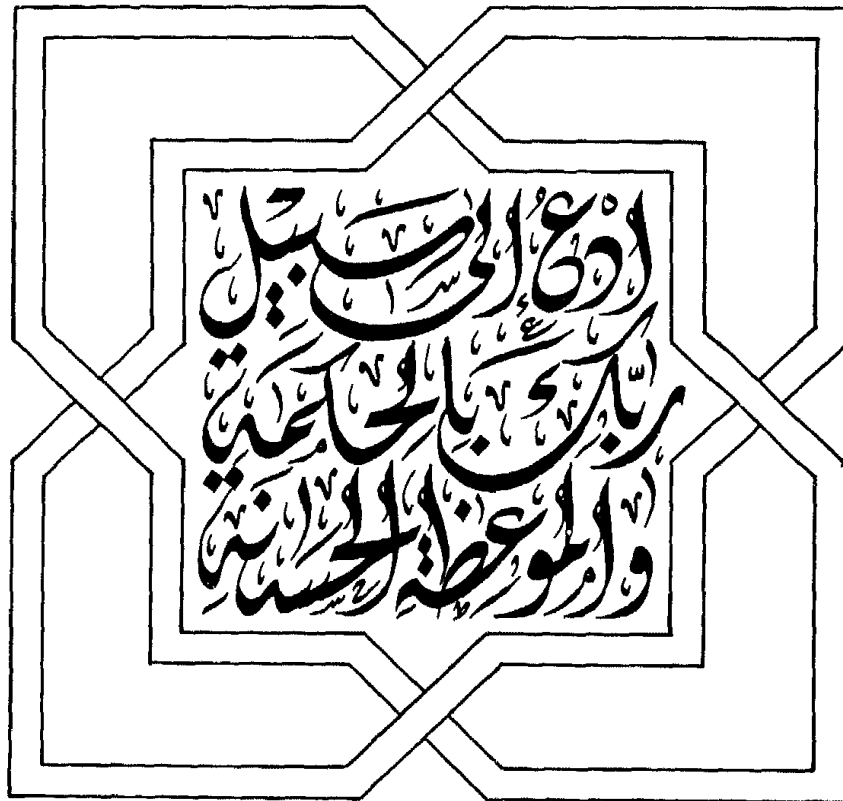 ادْعُ إلى سبيل
ربّك بالحكمة
والموعظة الحسنة